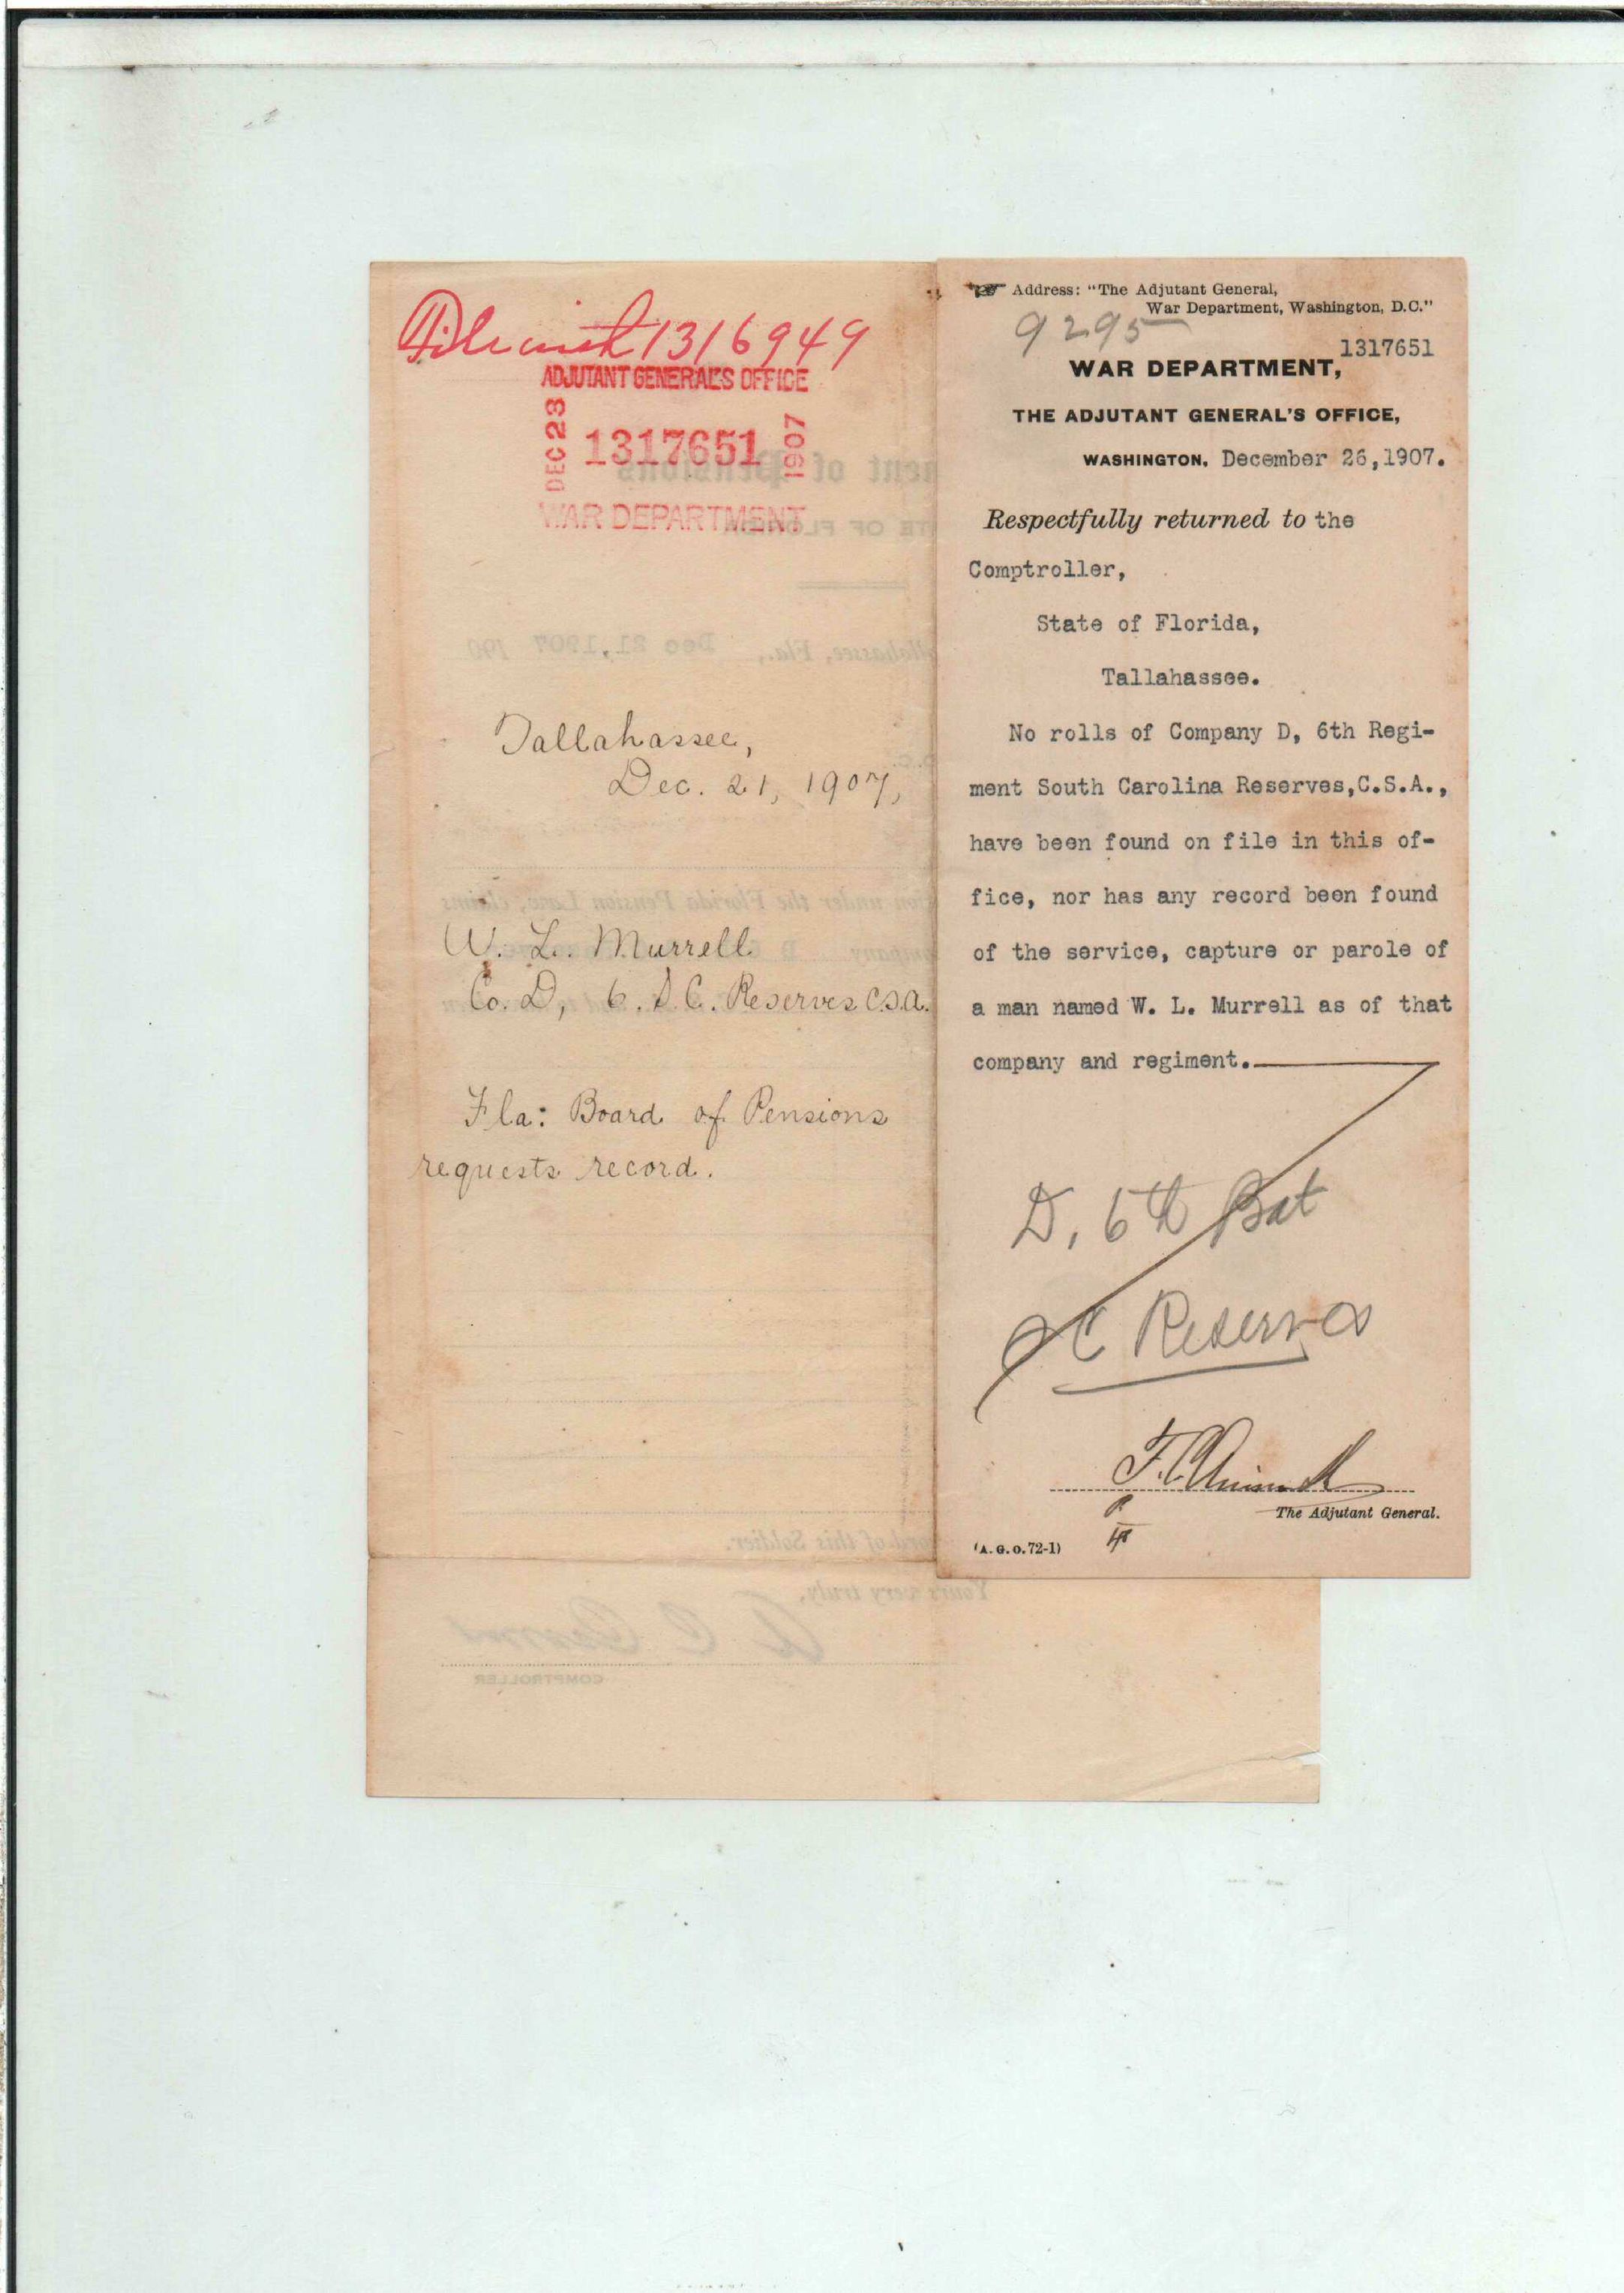 File with 1316949
ADJUTANT GENERAL'S OFFICE
DEC 23
1317651
1907
WAR DEPARTMENT
Tallahassee,
Dec. 21, 1907,
W. L. Murrell
Co. D, 6. S.C. Reserves C.S.A.
Fla: Board of Pensions
requests record.
Address: "The Adjutant General,
War Department, Washington, D.C."
9295
1317651
WAR DEPARTMENT,
THE ADJUTANT GENERAL'S OFFICE,
WASHINGTON, December 26,1907.
Respectfully returned to the
Comptroller,
State of Florida,
Tallahassee.
No rolls of Company D, 6th Regi-
ment South Carolina Reserves,C.S.A.,
have been found on file in this of-
fice, nor has any record been found
of the service, capture or parole of
a man named W. L. Murrell as of that
company and regiment.
D, 6th Bat
SC Reserves
The Adjutant General.
(A.G.O.72-1)
Dec 21,1907 190
Yours very truly,
COMPTROLLER